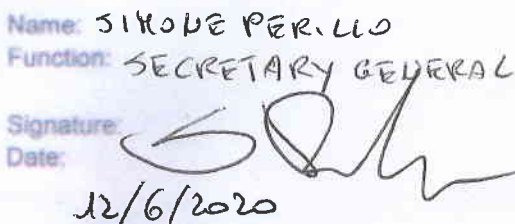 Name: SIMONE PERILLO
Function: SECRETARY GENERAL
Signature:
Date:
12/6/2020